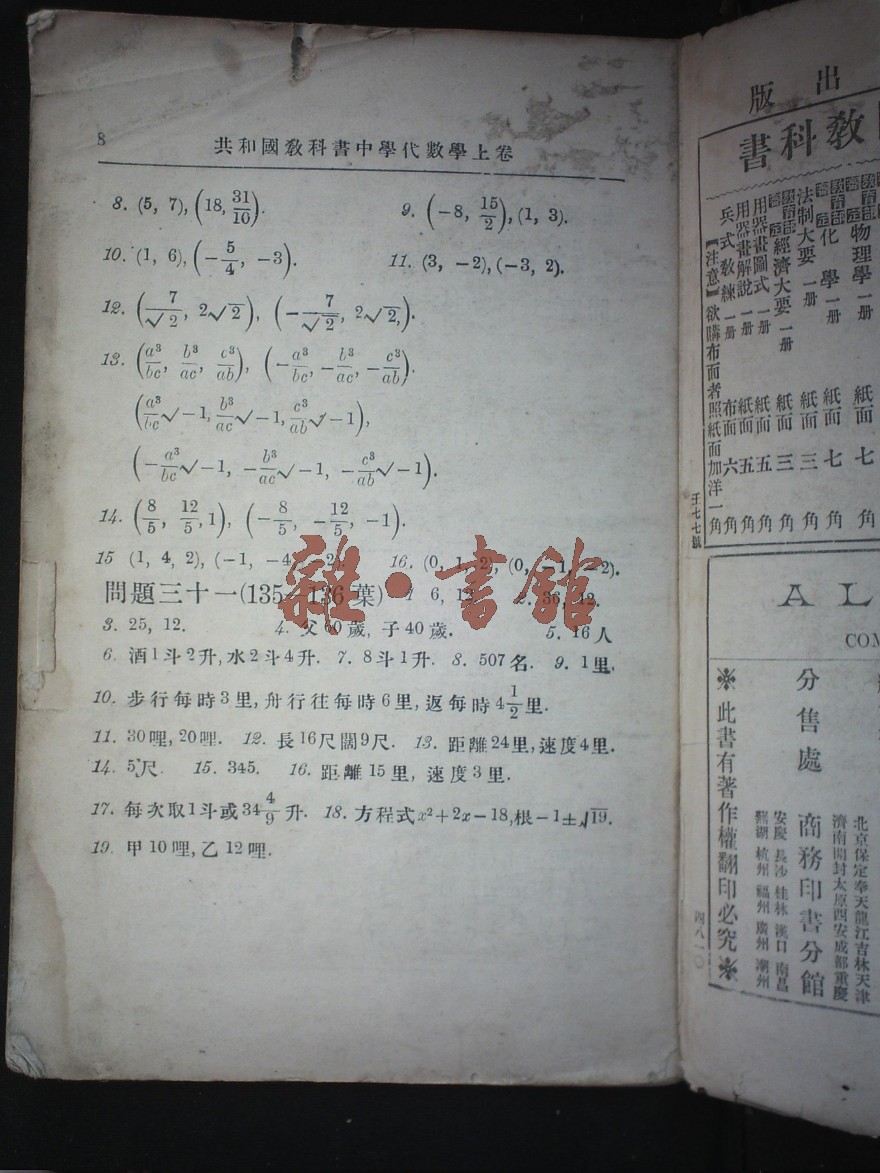 8
共和國教科書中學代數學上卷
8. (5, 7), (18, 31/10).
9. (−8, 15/2), (1, 3).
10. (1, 6), (−5/4, −3).
11. (3, −2), (−3, 2).
12. (7/√2, 2√2), (−7/√2, 2√2,).
13. (a³/bc, b³/ac, c³/ab), (−a³/bc, −b³/ac, −c³/ab).
(a³/bc √−1, b³/ac √−1, c³/ab √−1),
(−a³/bc √−1, −b³/ac √−1, −c³/ab √−1).
14. (8/5, 12/5, 1), (−8/5, −12/5, −1).
15 (1, 4, 2), (−1, −4, −2). 16. (0, 1, 2), (0, −1, −2).
雜·書館
問題三十一(135—136葉) 1 6, 12. 36, 12.
3. 25, 12. 4. 父60歲, 子40歲. 5. 16人
6. 酒1斗2升, 水2斗4升. 7. 8斗1升. 8. 507名. 9. 1里.
10. 步行每時3里, 舟行往每時6里, 返每時4 1/2里.
11. 30哩, 20哩. 12. 長16尺闊9尺. 13. 距離24里, 速度4里.
14. 5尺 15. 345. 16. 距離15里, 速度3里.
17. 每次取1斗或34 4/9升. 18. 方程式x²+2x−18, 根−1±√19.
19. 甲10哩, 乙12哩.
出版
教科書
物理學 一册 紙面 七角
化學 一册 紙面 七角
法制大要 一册 紙面 三角
經濟大要 一册 紙面 三角
用器畫圖式 一册 紙面 五角
用器畫解說 一册 紙面 五角
兵式教練 一册 布面 六角
【注意】欲購布面者照紙面加洋一角
壬七七號
AL
COM
分售處 商務印書分館
北京保定奉天龍江吉林天津
濟南開封太原西安成都重慶
安慶 長沙 桂林 漢口 南昌
蕪湖 杭州 福州 廣州 潮州
※此書有著作權翻印必究※
四八一〇